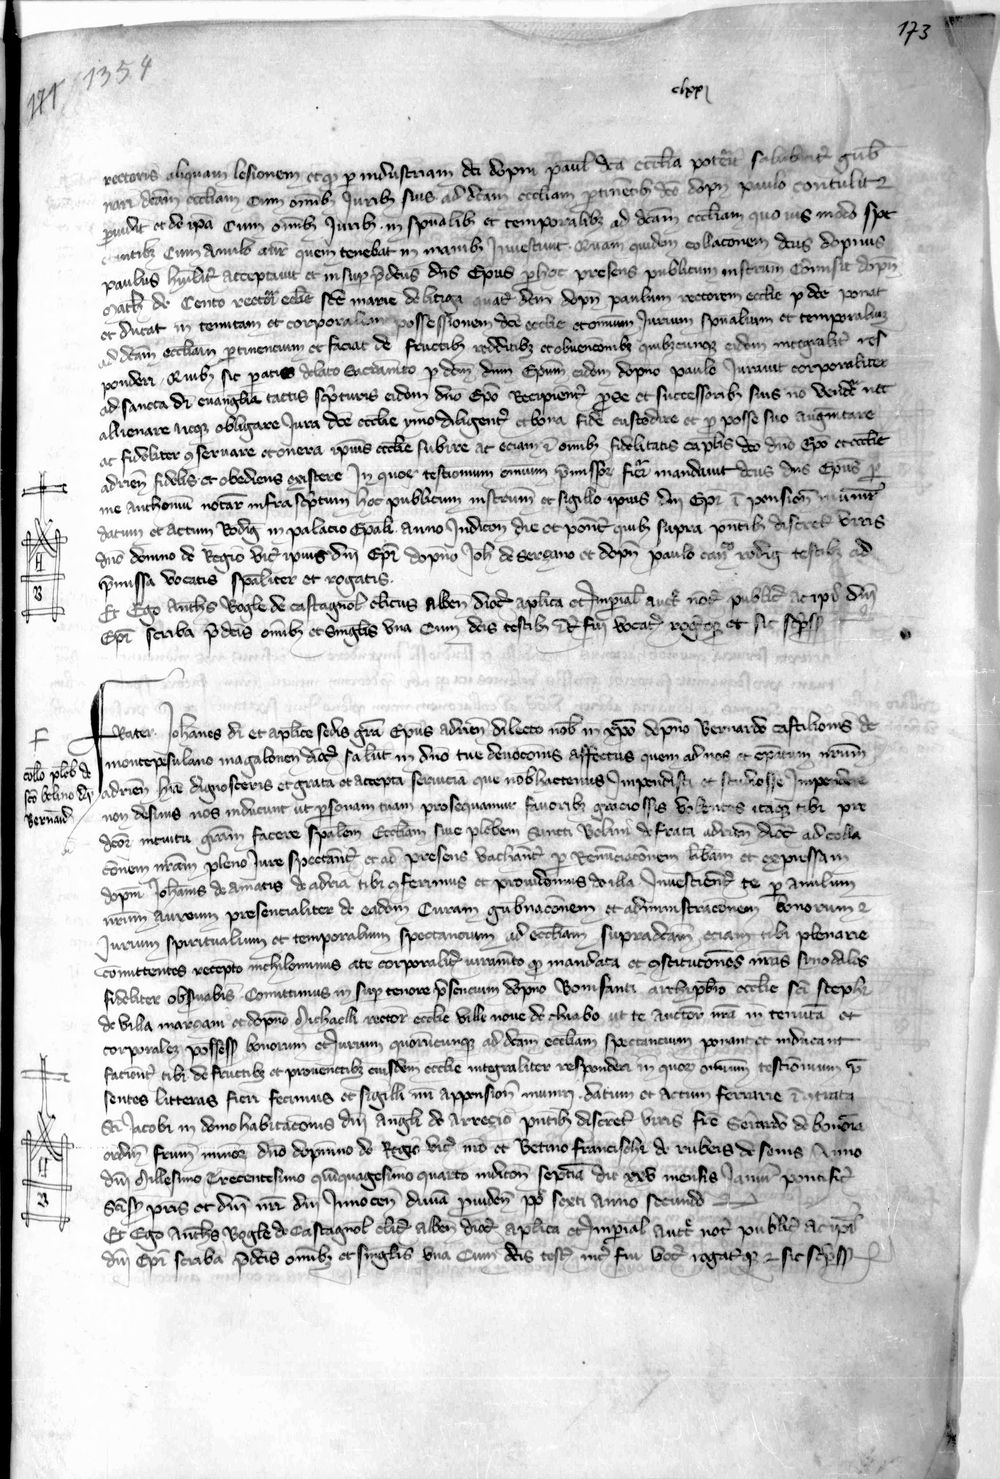 173
1354
171
clxxi
rectoris aliquam lesionem et q p industriam dci dopni pauli dca ecclia poterit salubrit gub
nari dcam eccliam Cum omib Juribz suis ad dcam eccliam ptinetib dco dopn paulo contulit z
puidit et de ipa Cum omib Juribz in spualib et temporalibz ad dcam eccliam quo uis modo spec
tantibz Cum Anulo aur quem tenebat in manib Inuestiuit. Quam quidem collaconem dcus dopnus
paulus humilit acceptauit et insup pdcus dns Epus p hoc presens publicum instrum Comisit dopn
math de Cento rectori eccle sce marie de litiga quat dcm dopn paulum rectorem eccle p dce ponat
et ducat in tenutam et corporalem possessionem dce eccle et omium Jurium spualium et temporalium
ad dcam eccliam ptinencium et faciat de fructib redditibz et obuencionibz quibzcunqz eidem integralit res
ponderi. Quib sic patis delato Sacramto p dcm dnm Epum eidem dopno paulo Jurauit corporaliter
ad sancta di euanglia tactis scpturis eidem dno Epo Recipient p se et successorib suis no vendr nec
allienare neqz obligare Jura dce eccle ymo diligent et bona fide custodire et p posse suo augmtare
ac fideliter conseruare et onera ipius eccle subire ac eciam i omib fidelitatis caplis dco dno Epo et eccle
adrien fidelis et obediens existere In quor testionium omium pmissor fieri mandauit dcus dns Epus p
me Anthonium notar infrascptum hoc publicum instrum et sigillo ipius dni Epi i pension munir
datum et Actum Rodig in palacio Epali. Anno Indicon die et pont quib supra pntib discret viris
dno domno de Regio vic ipius dni Epi dopno Joh de Serzano et dopn paulo can rodig testibz ad
pmissa vocatis spaliter et rogatis.
Et Ego Anths Rogle de castagnol clicus Alben dioc aplica et Imperial auct not public ac ipi dni
Epi scriba pdcis omib et singlis vna Cum dcis testib it fui vocat rogatqz et sic scpsi
F
collo pleb de
sco belino dp
Bernard
Frater Johanes di et aplice sedis gra Epus adrien dilecto nob in xpo dopno Bernardo castilionis de
montepesulano magalonen dioc salut in dno tue deuocionis affectus quem ad nos et epatum nrum
adrien hre dignosceris et grata et accepta seruicia que nob hactenus Impendisti et studiosse Impendere
non desinis nos inducunt ut psonam tuam prosequamur fauoribz graciossis volentes itaqz tibi pre
dcor intuitu gram facere spalem Eccliam siue plebem Sancti Belini de frata adrien dioc ad colla
conem nram pleno Jure spectant et ad presens vachant p Renuciaconem libam et expressam
dopni Johanis de amatis de adria tibi conferimus et prouidemus de illa Inuestient te p Anulum
nrum Aureum presencialiter de eadem Curam gubnaconem et administraconem bonorum z
Jurium spiritualium et temporalium spectancium ad eccliam supradcam eciam tibi plenarie
comittentes recepto nichilominus a te corporalit iurameto q mandata et costitucones nras sinodales
fideliter obseruabis Comittimus insup tenore psencium dopno Bonifanti archipbro eccle sci stephi
de villa marzani et dopno Michaelli rector eccle ville noue de chiabo ut te auctor nra in tenutam et
corporalez possess bonorum et Jurium quorucunqz ad dcam eccliam spectancium ponant et inducant
facient tibi de fructibz et prouentibz eiusdem eccle integraliter responderi in quor omium testionium p
sentes litteras fieri fecimus et sigilli nri appension muniri. datum et Actum ferrarie i contrata
sci Jacobi in domo habitaconis dni Angli de Arrezio pntib discret viris fre Gerardo de bononia
ordin frum minor dno domnino de Regio vic nro et Betino francischi de rubeis de sonis Anno
dni Millesimo Trecentesimo quinquagesimo quarto indicon septia die xxv mensis Januarii pontificat
Sanctissi pris et dni nri dni Innocen diuina puiden pp sexti Anno secundo
Et Ego Anths Rogle de Castagnol clic Alben dioc aplica et Imperial Auct not public ac ipi
dni Epi scriba pdcis omibz et singlis vna Cum dcis test int fui voc rogat qz z sic scpsi